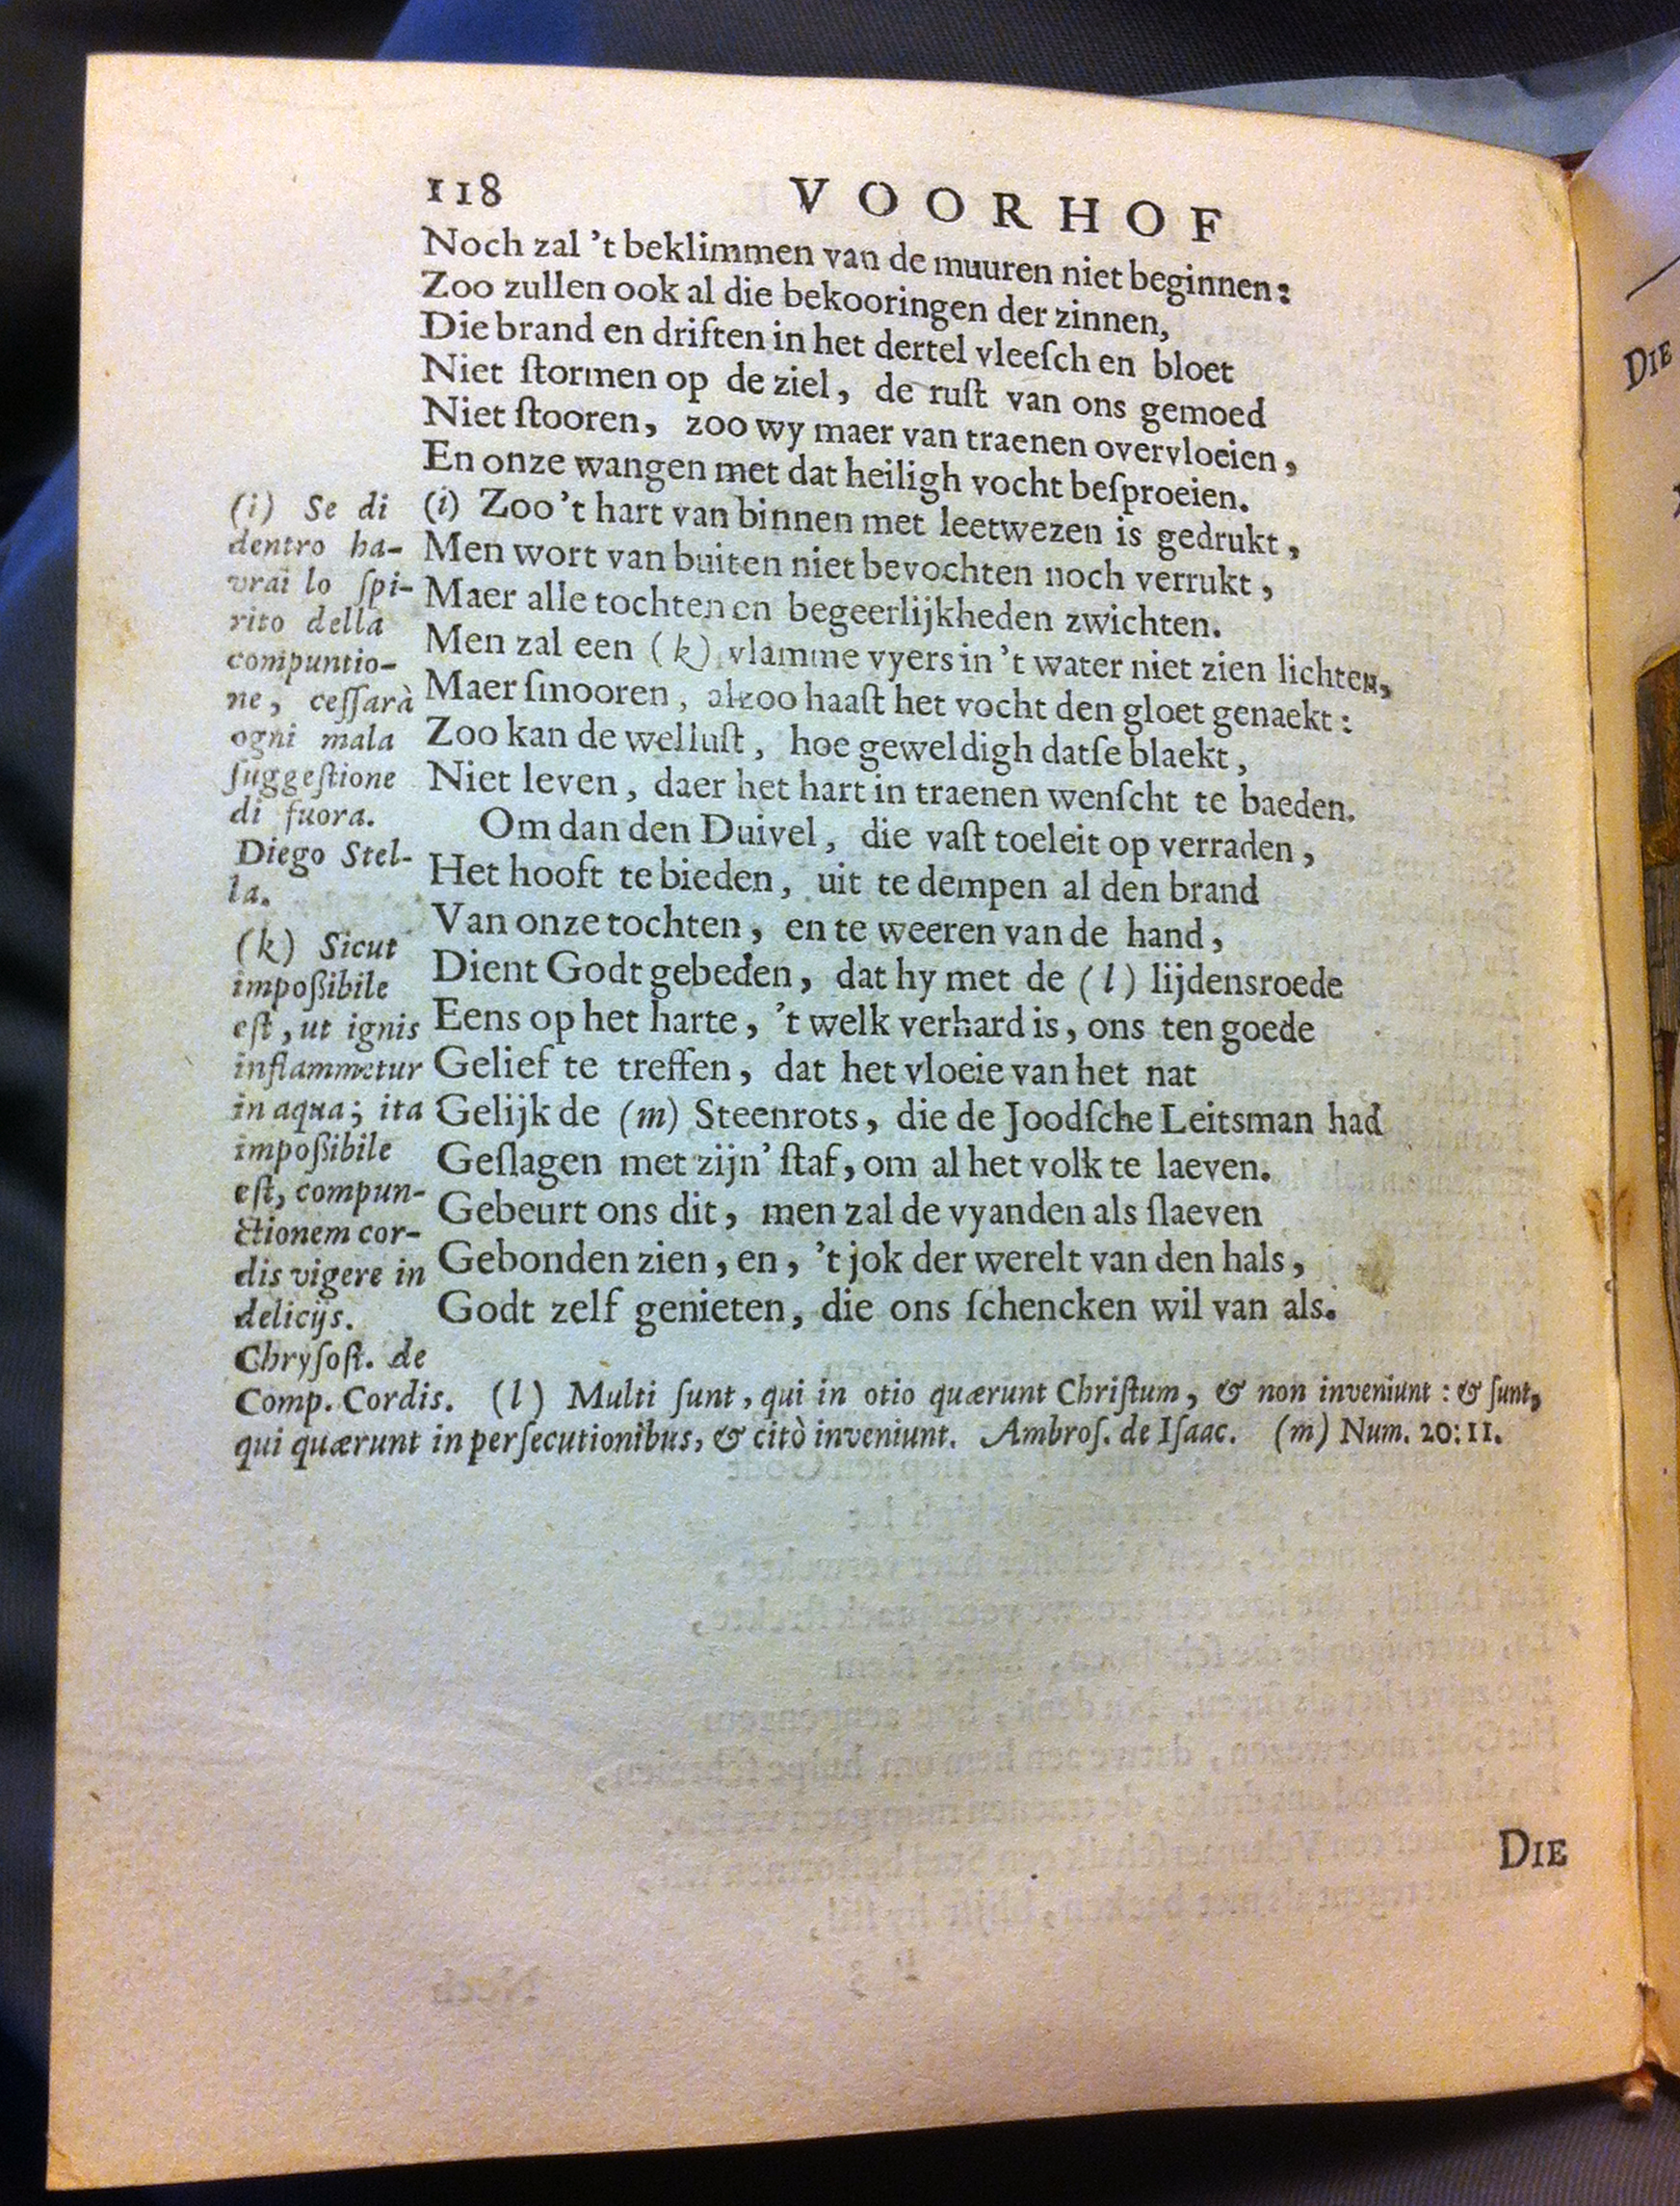 118 VOORHOF
Noch zal 't beklimmen van de muuren niet beginnen:
Zoo zullen ook al die bekooringen der zinnen,
Die brand en driften in het dertel vleeſch en bloet
Niet ſtormen op de ziel, de ruſt van ons gemoed
Niet ſtooren, zoo wy maer van traenen overvloeien,
En onze wangen met dat heiligh vocht beſproeien.
(i) Zoo 't hart van binnen met leetwezen is gedrukt,
Men wort van buiten niet bevochten noch verrukt,
Maer alle tochten en begeerlijkheden zwichten.
Men zal een (k) vlamme vyers in 't water niet zien lichten,
Maer ſmooren, alzoo haaſt het vocht den gloet genaekt:
Zoo kan de welluſt, hoe geweldigh datſe blaekt,
Niet leven, daer het hart in traenen wenſcht te baeden.
Om dan den Duivel, die vaſt toeleit op verraden,
Het hooft te bieden, uit te dempen al den brand
Van onze tochten, en te weeren van de hand,
Dient Godt gebeden, dat hy met de (l) lijdensroede
Eens op het harte, 't welk verhard is, ons ten goede
Gelief te treffen, dat het vloeie van het nat
Gelijk de (m) Steenrots, die de Joodſche Leitsman had
Geſlagen met zijn' ſtaf, om al het volk te laeven.
Gebeurt ons dit, men zal de vyanden als ſlaeven
Gebonden zien, en, 't jok der werelt van den hals,
Godt zelf genieten, die ons ſchencken wil van als.
(i) Se di
dentro ha-
vrai lo ſpi-
rito della
compuntio-
ne, ceſſarà
ogni mala
ſuggeſtione
di fuora.
Diego Stel-
la.
(k) Sicut
impoßibile
eſt, ut ignis
inflammetur
in aqua; ita
impoßibile
eſt, compun-
ctionem cor-
dis vigere in
delicijs.
Chryſoſt. de
Comp. Cordis. (l) Multi ſunt, qui in otio quærunt Chriſtum, & non inveniunt: & ſunt,
qui quærunt in perſecutionibus, & citò inveniunt. Ambroſ. de Iſaac. (m) Num. 20:11.
DIE
DIE